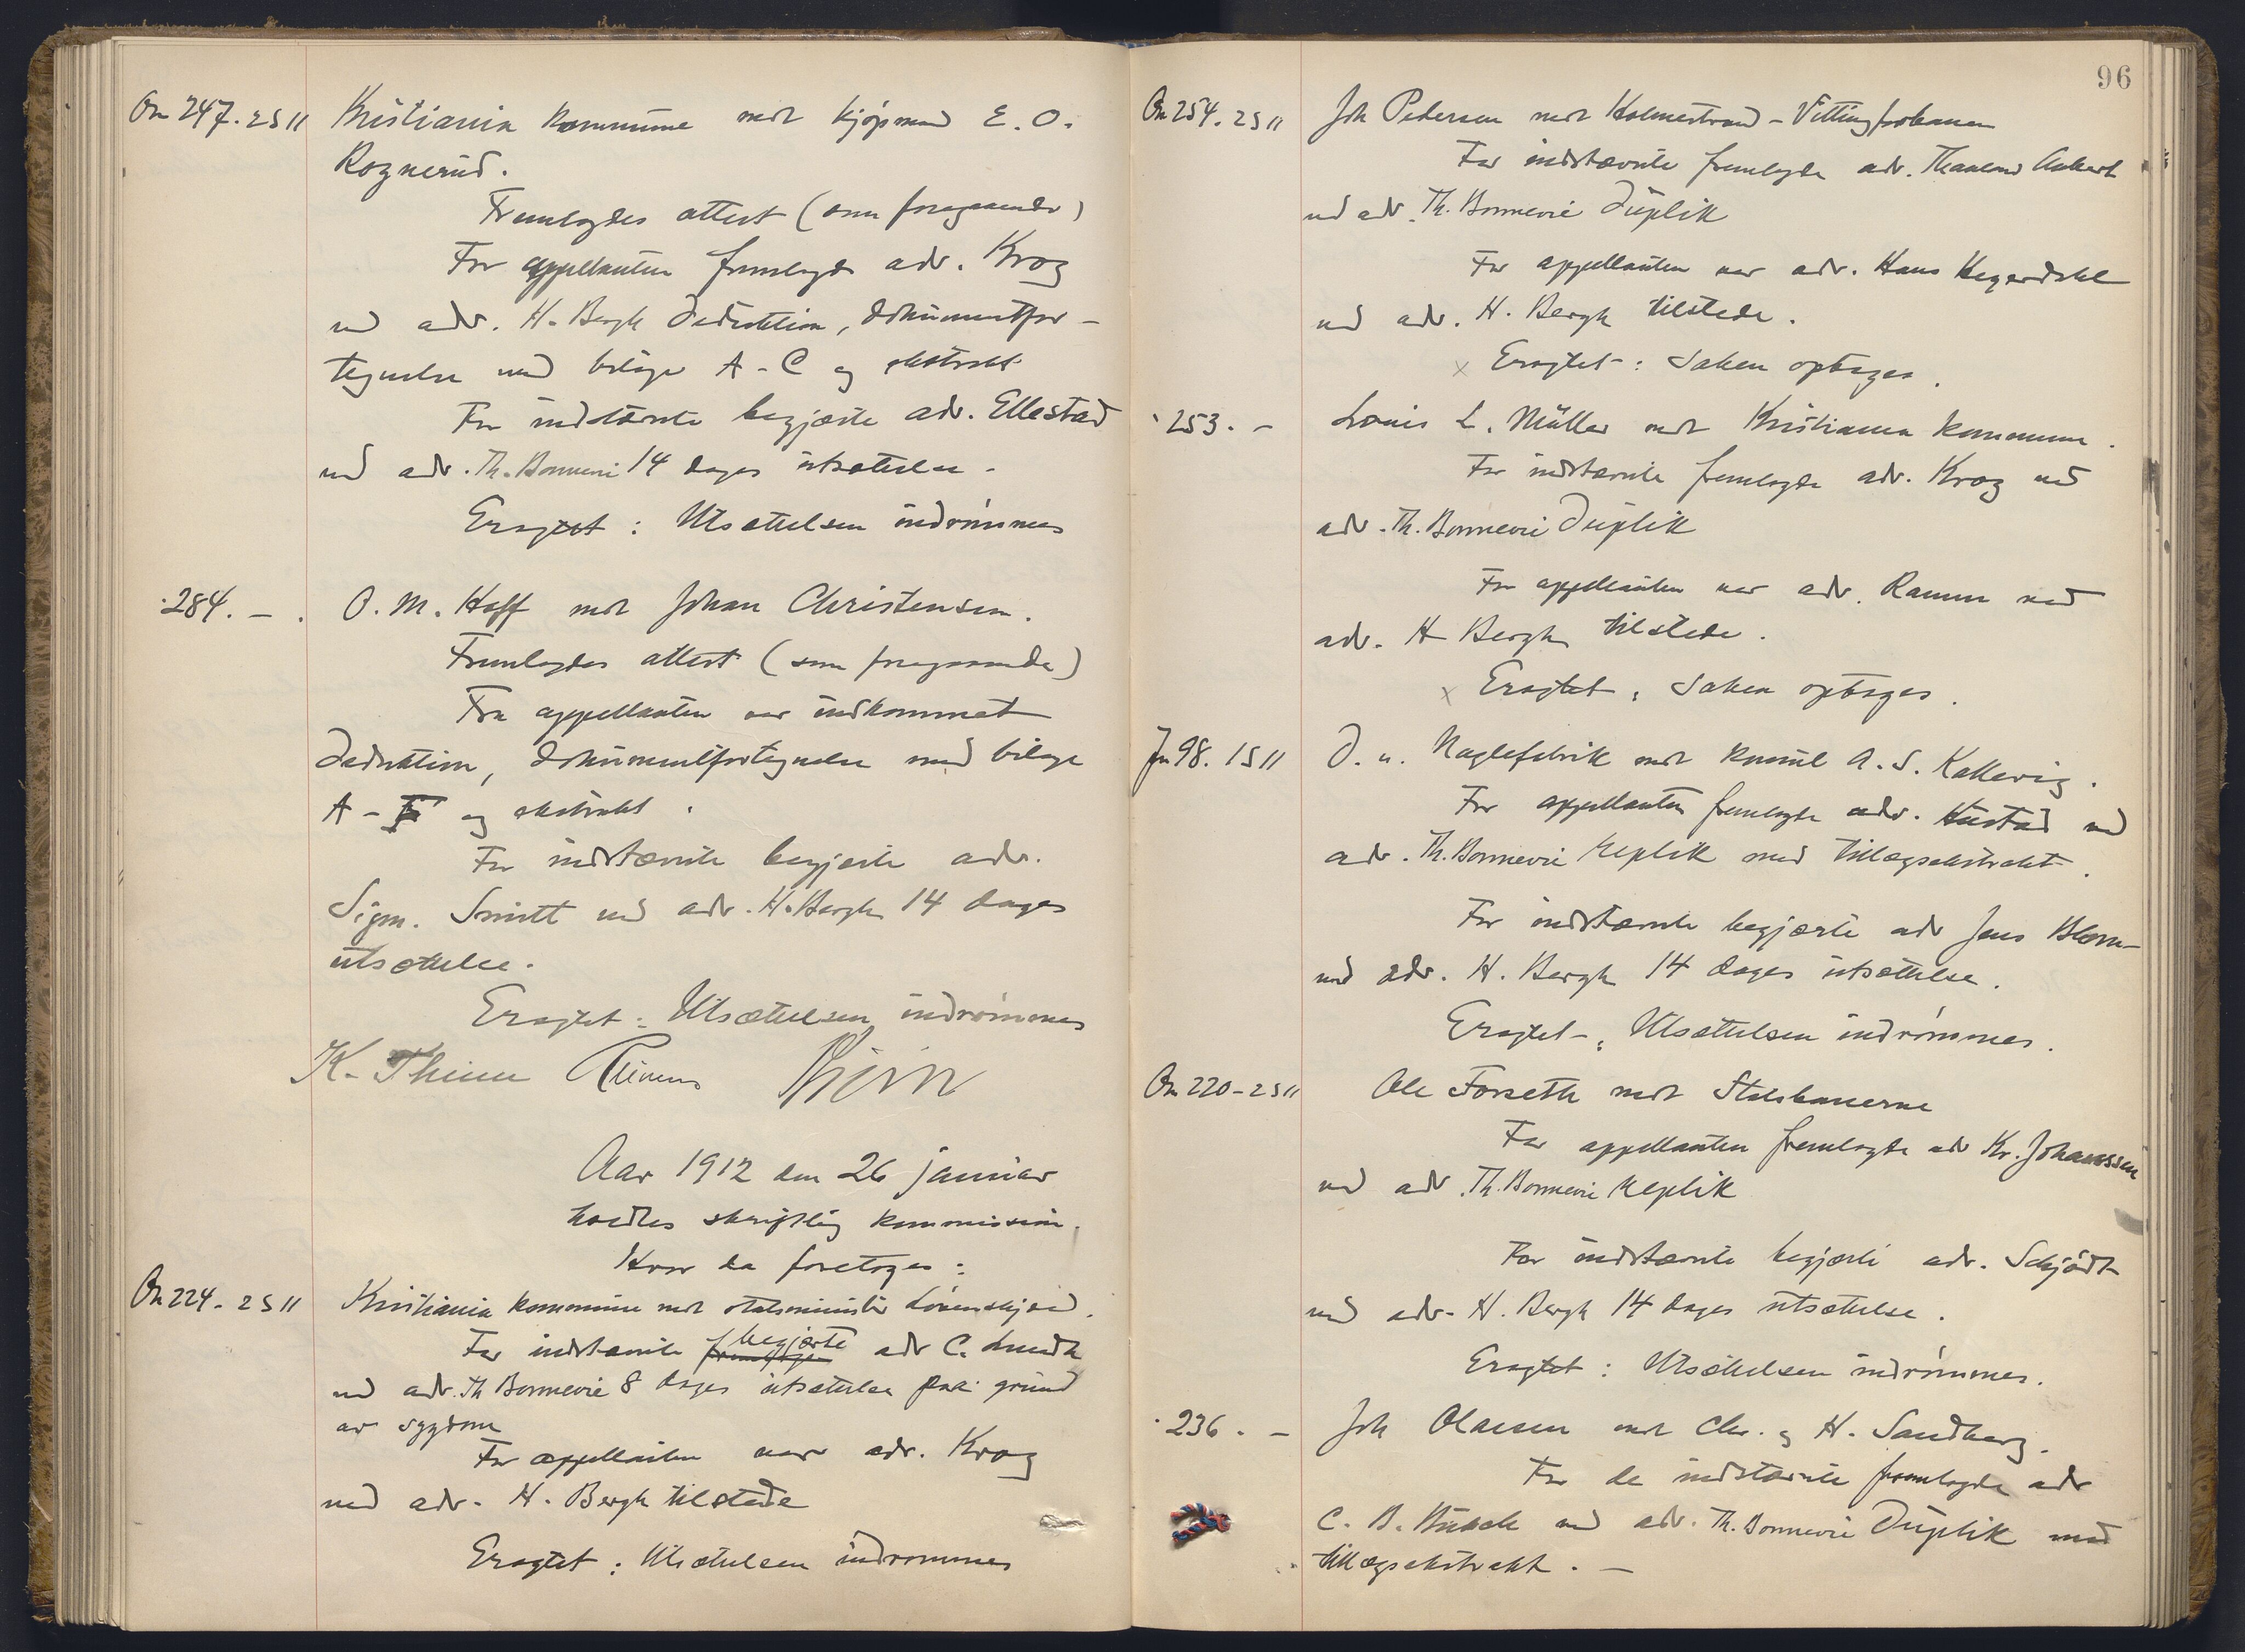 On 247. 2S11 Kristiania kommune mot kjøpmand E. O.
Rognerud.
Fremlagdes attest (som foregaaende)
For appellanten fremlagde adv. Krog
ved adv. H. Bergh Deduktion, dokumentfor-
tegnelse med bilage A-C og ekstrakt
For indstævnte begjærte adv. Ellestad
ved adv. Th. Bonnevie 14 dages utsættelse.
Eragtet: Utsættelsen indrømmes
284. - . O. M. Hoff mot Johan Christensen.
Fremlagdes attest (som foregaaende)
Fra appellanten var indkommet
Deduktion, dokumentfortegnelse med bilage
A - og ekstrakt.
For indstævnte begjærte adv.
Sigm. Smitt ved adv. H. Bergh 14 dages
utsættelse.
Eragtet: Utsættelsen indrømmes
K. Thinn
Aar 1912 den 26 januar
holdtes skriftlig kommission.
Hvor da foretoges:
On 224. 2S11 Kristiania kommune mot statsminister Løvenskjold.
For indstævnte begjærte adv C. Lundh
ved adv. Th Bonnevie 8 dages utsættelse paa grund
av sygdom
For appellanten var adv. Krog
ved adv. H. Bergh tilstede
Eragtet: Utsættelsen indrømmes
96
On 254. 2S11 Joh Pedersen mot Holmestrand-Vittingfosbanen
For indstævnte fremlagde adv. Thaulow Aubert
ved adv. Th. Bonnevie Duplik
For appellanten var adv. Hans Hegerdahl
ved adv. H. Bergh tilstede.
x Eragtet: Saken optages.
253. - Louis L. Müller mot Kristiania kommune.
For indstævnte fremlagde adv. Krog ved
adv. Th. Bonnevie Duplik
For appellanten var adv. Ramm ved
adv. H Bergh tilstede.
x Eragtet: Saken optages.
Jn 98. 1S11 D. n. Naglefabrik mot konsul A. S. Kallevig.
For appellanten fremlagde adv. Hustad ved
adv. Th. Bonnevie Replik med tillægsekstrakt.
For indstævnte begjærte adv Jens Blom
ved adv. H. Bergh 14 dages utsættelse.
Eragtet: Utsættelsen indrømmes.
On 220 - 2S11 Ole Forseth mot Statsbanerne
For appellanten fremlagde adv Kr. Johanssen
ved adv. Th. Bonnevie Replik
For indstævnte begjærte adv. Schjødt
ved adv. H. Bergh 14 dages utsættelse.
Eragtet: Utsættelsen indrømmes.
236. - Joh Olausen mot Chr. og H. Sandberg.
For de indstævnte fremlagde adv
C. B. ved adv. Th. Bonnevie Duplik med
tillægsekstrakt. -